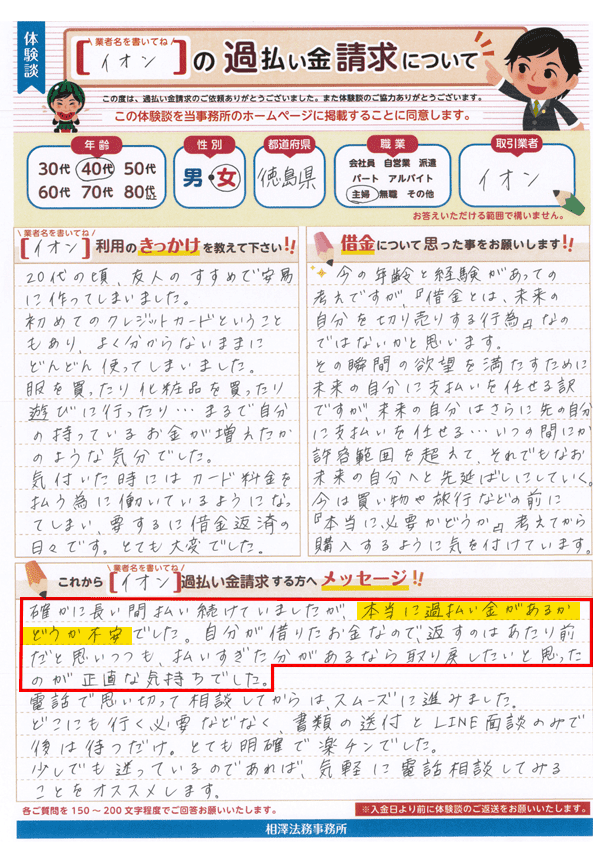 体験談
業者名を書いてね
[イオン]の過払い金請求について
この度は、過払い金請求のご依頼ありがとうございました。また体験談のご協力ありがとうございます。
この体験談を当事務所のホームページに掲載することに同意します。
年齢
30代 40代 50代
60代 70代 80代以上
性別
男・女
都道府県
徳島県
職業
会社員 自営業 派遣
パート アルバイト
主婦 無職 その他
取引業者
イオン
お答えいただける範囲で構いません。
業者名を書いてね
[イオン]利用のきっかけを教えて下さい!!
20代の頃、友人のすすめで安易
に作ってしまいました。
初めてのクレジットカードということ
もあり、よく分からないままに
どんどん使ってしまいました。
服を買ったり化粧品を買ったり
遊びに行ったり…まるで自分
の持っているお金が増えたか
のような気分でした。
気付いた時にはカード料金を
払う為に働いているようになっ
てしまい、要するに借金返済の
日々です。とても大変でした。
借金について思った事をお願いします!!
今の年齢と経験があっての
考えですが、『借金とは、未来の
自分を切り売りする行為』なの
ではないかと思います。
その瞬間の欲望を満たすために
未来の自分に支払いを任せる訳
ですが未来の自分はさらに先の自分
に支払いを任せる…いつの間にか
許容範囲を超えて、それでもなお
未来の自分へと先延ばしにしていく。
今は買い物や旅行などの前に
『本当に必要かどうか』考えてから
購入するように気を付けています。
業者名を書いてね
これから[イオン]過払い金請求する方へメッセージ!!
確かに長い間払い続けていましたが、本当に過払い金があるか
どうか不安でした。自分が借りたお金なので、返すのはあたり前
だと思いつつも、払いすぎた分があるなら取り戻したいと思った
のが正直な気持ちでした。
電話で思い切って相談してからは、スムーズに進みました。
どこにも行く必要などなく、書類の送付とLINE面談のみで
後は待つだけ。とても明確で楽チンでした。
少しでも迷っているのであれば、気軽に電話相談してみる
ことをオススメします。
各ご質問を150～200文字程度でご回答お願いいたします。
※入金日より前に体験談のご返送をお願いいたします。
相澤法務事務所